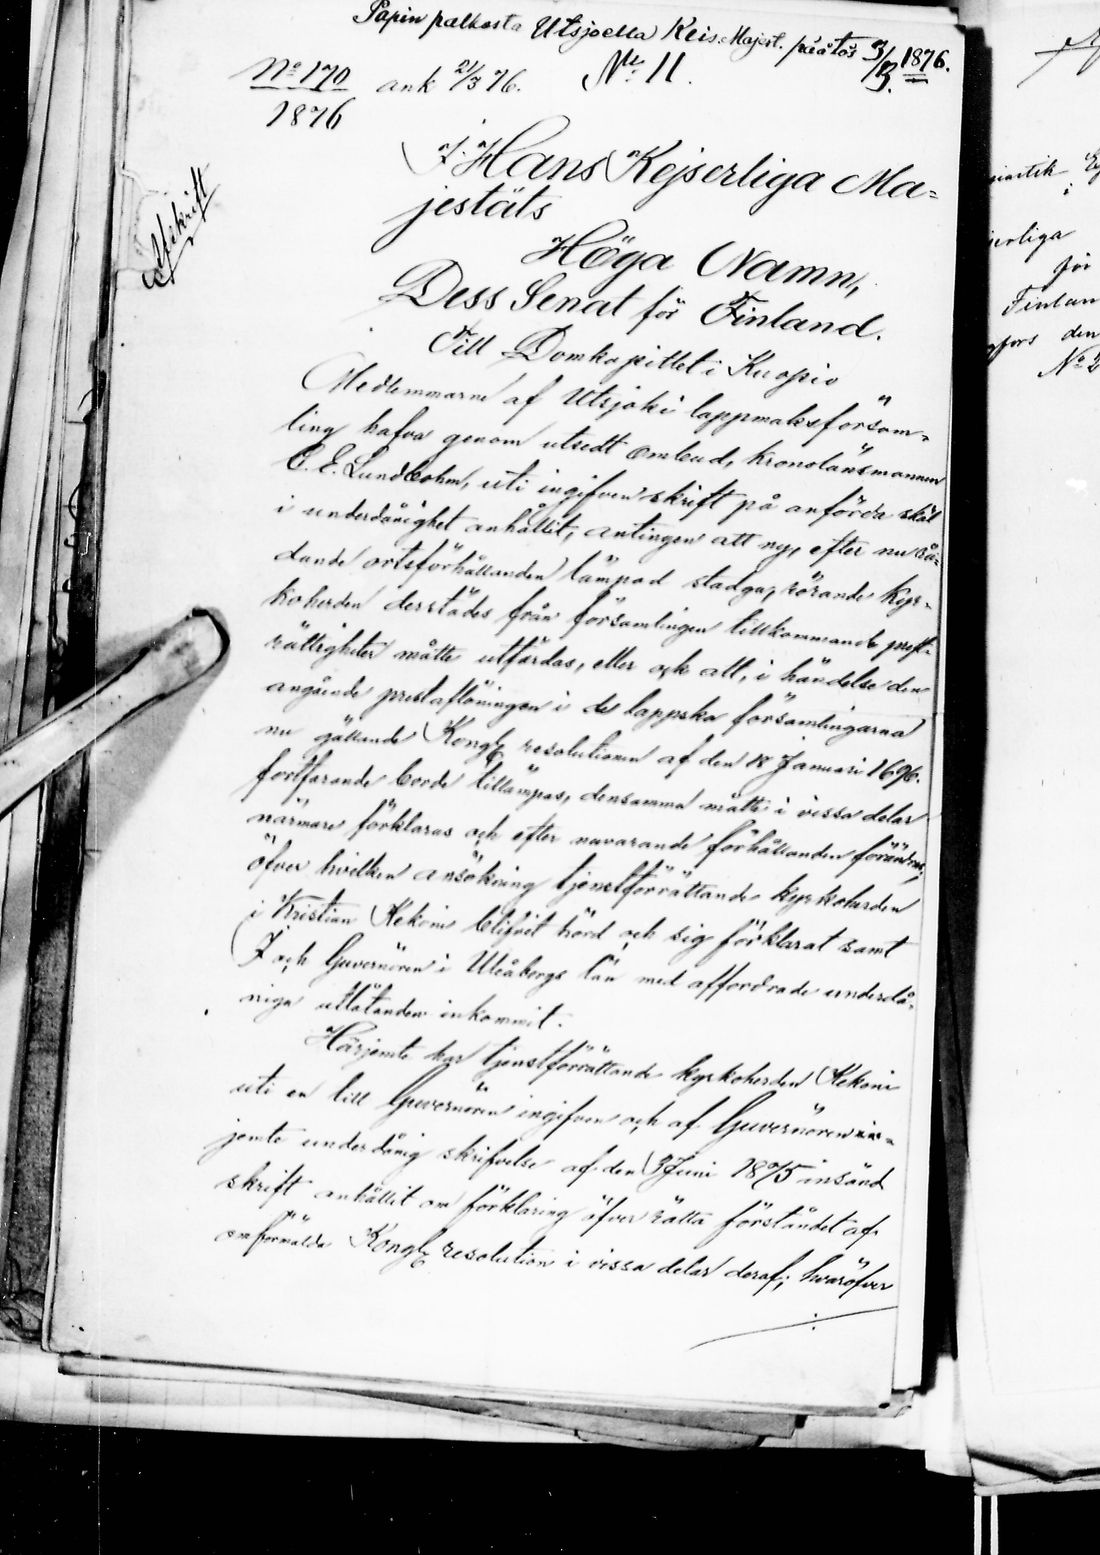 Papin palkasta Utsjoella Keis. Majest. päätös 3/3. 1876.
No 170 ank 21/3 76. No 11.
1876
Afskrift
I Hans Kejserliga Ma-
jestäts
Höga Namn,
Dess Senat för Finland.
Till Domkapitlet i Kuopio
Medlemmarne af Utsjoki lappmaksförsam-
ling hafva genom utsedt ombud, kronolänsmannen
C. E. Lundbohm, uti ingifven skrift på anförda skäl
i underdånighet anhållit, antingen att ny, efter nu rå-
dande ortsförhållanden lämpad stadga, rörande kyr-
koherden derstädes från församlingen tillkommande prest-
rättigheter måtte utfärdas, eller ock att, i händelse den
angående prestaflöningen i de lappska församlingarna
nu gällande Kongl. resolutionen af den Januari 1696.
fortfarande borde tillämpas, densamma måtte i vissa delar
närmare förklaras och efter nuvarande förhållanden förändras;
öfver hvilken ansökning tjenstförrättande kyrkoherden
i Kristian Kekoni blifvit hörd och sig förklarat samt
I och Guvernören i Uleåborgs län med affordrade underdå-
niga utlåtanden inkommit.
Härjemte har tjenstförrättande kyrkoherden Kekoni
uti en till Guvernören ingifven och af Guvernören
jemte underdånig skrifvelse af den 3 Juni 1875 insänd
skrift anhållit om förklaring öfver rätta förståndet af
omförmälda Kongl. resolution i vissa delar deraf; hvaröfver
./.
erliga
för
Finlan
gfors den
No 2